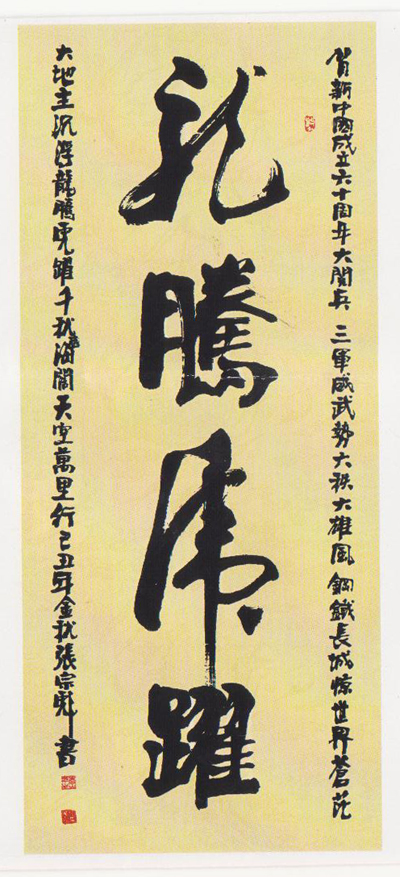 賀新中國成立六十周年大閱兵 三軍威武勢六秩大雄風 鋼鐵長城惊世界蒼茫
龍騰虎躍
大地主沉浮龍騰虎躍千秋海闊天空萬里行己丑年金秋張宗彪書